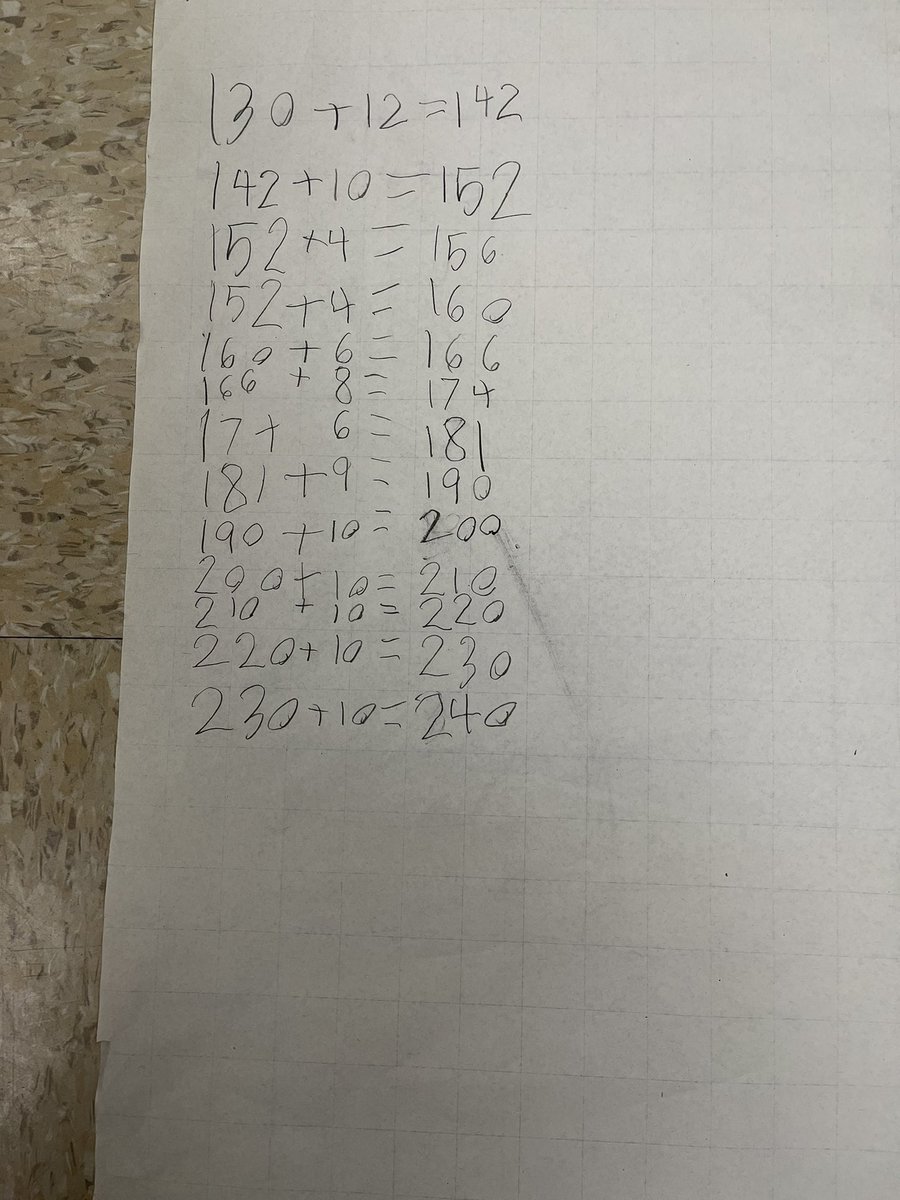 130 + 12 = 142
142 + 10 = 152
152 + 4 = 156
152 + 4 = 160
160 + 6 = 166
166 + 8 = 174
17 + 6 = 181
181 + 9 = 190
190 + 10 = 200
200 + 10 = 210
210 + 10 = 220
220 + 10 = 230
230 + 10 = 240